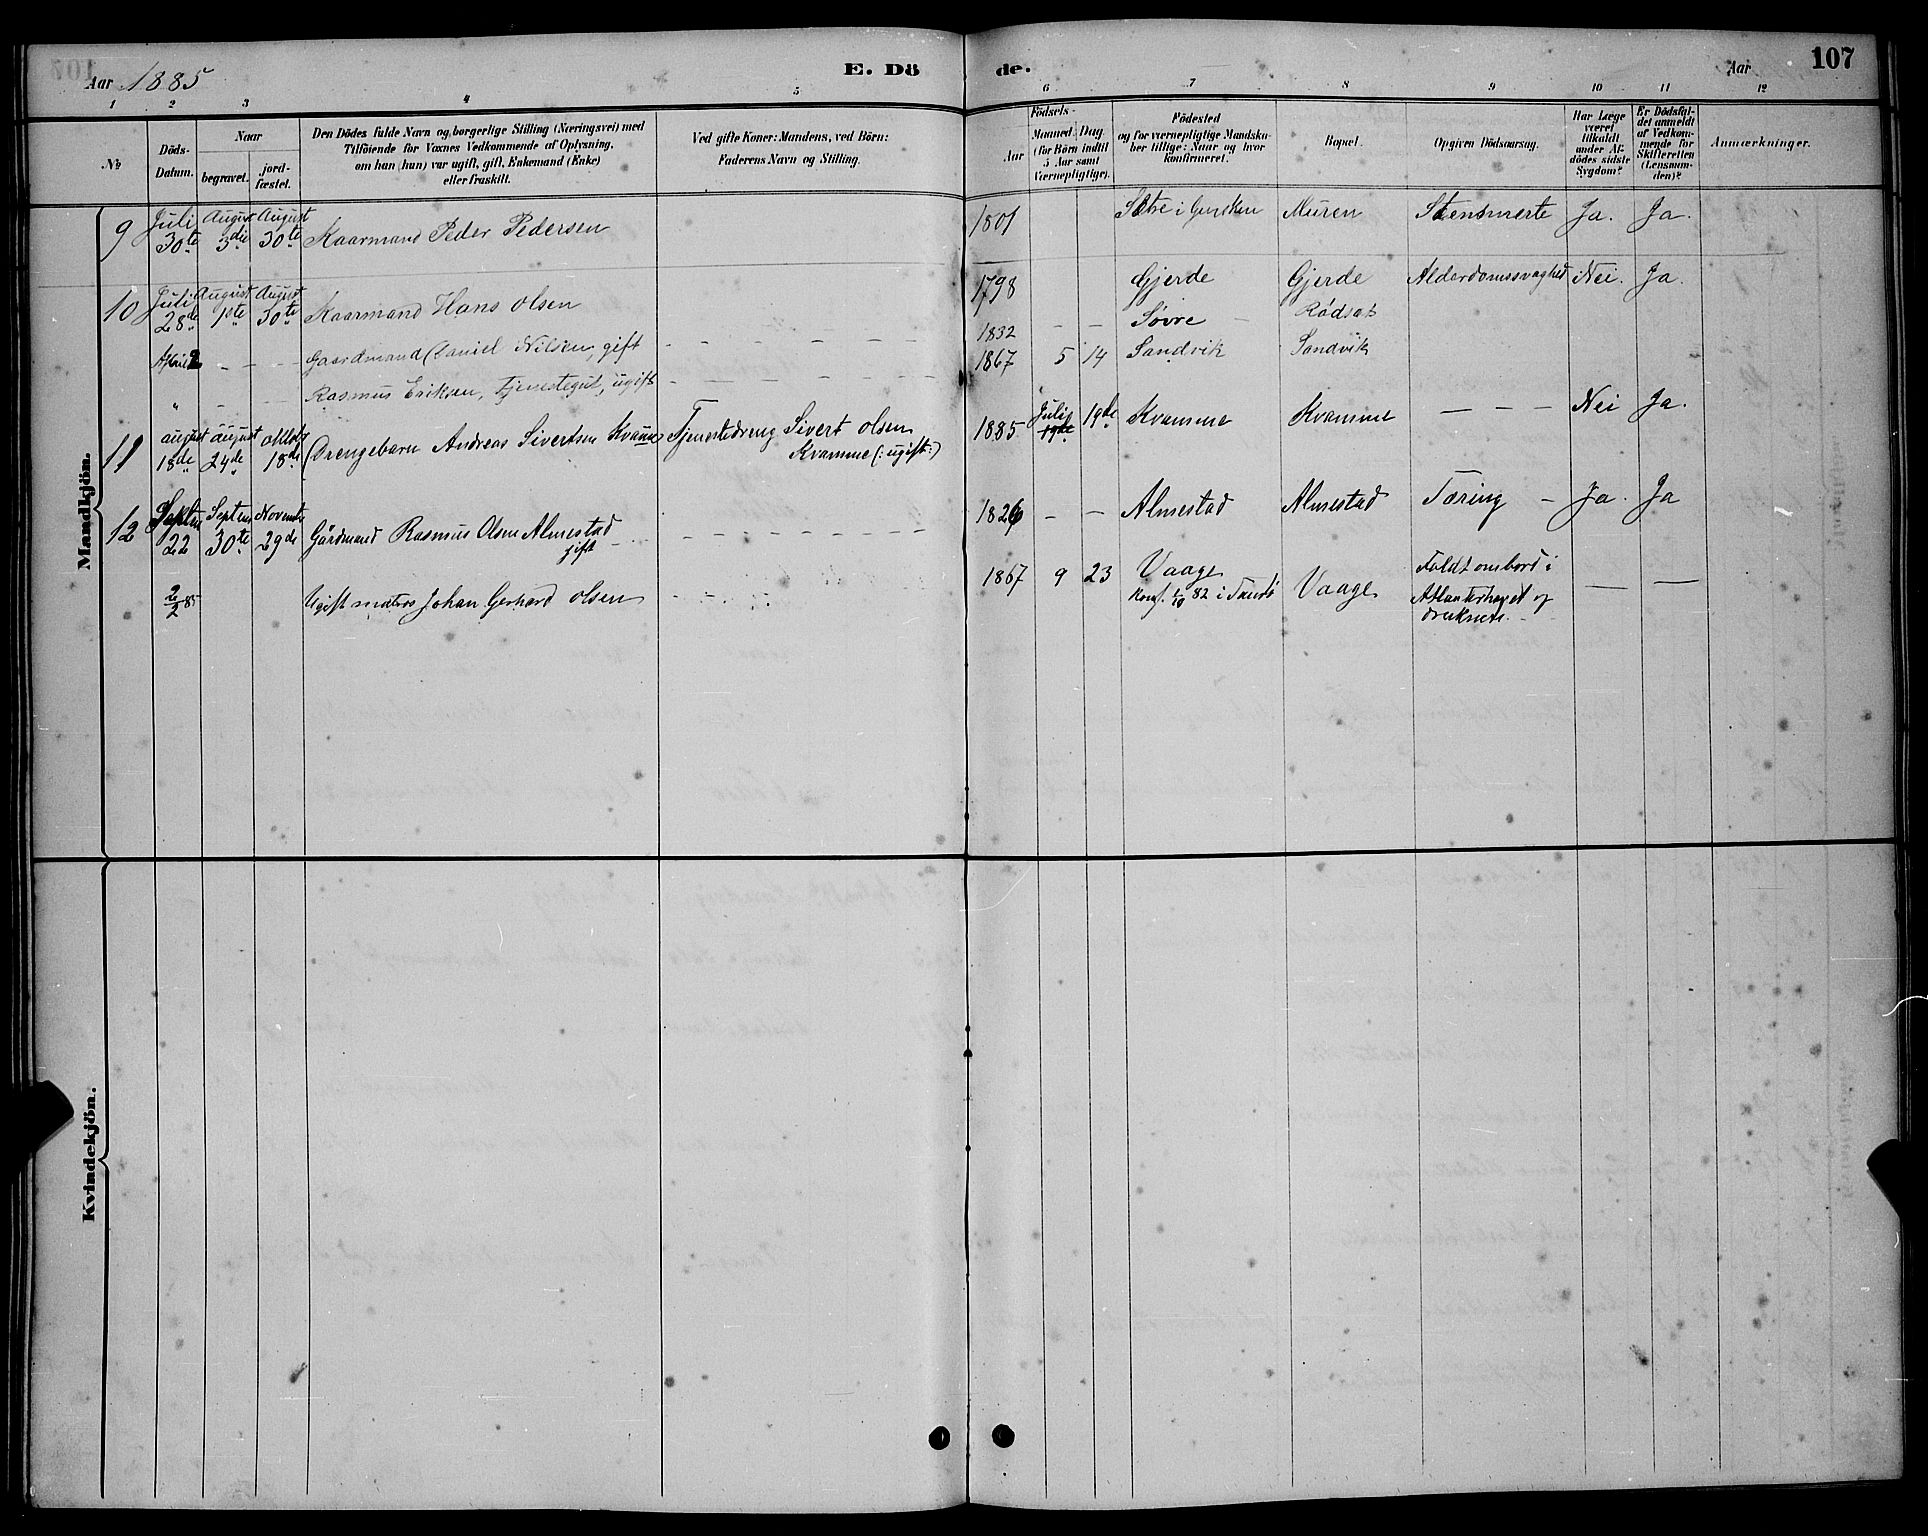 107
Aar 1885
E. Dö
de.
Aar
1 2 3 4 5 6 7 8 9 10 11 12
№
Döds-Datum.
Naar
begravet.
jord-fæstet.
Den Dödes fulde Navn og borgerlige Stilling (Næringsvei) med
Tilföiende for Voxnes Vedkommende af Oplysning,
om han (hun) var ugift, gift, Enkemand (Enke)
eller fraskilt.
Ved gifte Koner: Mandens, ved Börn:
Faderens Navn og Stilling.
Födsels-
Aar
Maaned Dag
(for Börn indtil
5 Aar samt
Værnepligtige).
Födested
og for værnepligtige Mandska-
ber tillige: Naar og hvor
konfirmeret.
Bopæl.
Opgiven Dödsaarsag.
Har Læge
været
tilkaldt
under Af-
dödes sidste
Sygdom?
Er Dödsfal-
det anmeldt
af Vedkom-
mende for
Skifteretten
(Lensman-
den)?
Anmærkninger.
Mandkjön.
9 Juli 30te August 3die August 30te Kaarmand Peder Pedersen 1801 Sætre i Gursken Muren Stensmerte Ja. Ja.
10 Juli 28de August 1ste August 30te Kaarmand Hans Olsen 1798 Gjerde Gjerde Alderdomssvaghed Nei. Ja.
April 2 - - Gaardmand Daniel Nilsen, gift - - - 1832 - - Søvre - Rødsæt
" - - Rasmus Eriksen, Tjenestegut, ugift - - - 1867 5 14 Sandvik Sandvik
11 august 18de august 24de oktob 18de Drengebarn Andreas Sivertsen Kvamme Tjenestedreng Sivert Olsen
Kvamme (: ugift :) 1885 Juli 19de 19de Kvamme Kvamme - - - Nei Ja.
12 Septem 22 Septem 30te Novemb 29de Gårdmand Rasmus Olsen Almestad
gift - - - 1826 - - Almestad Almestad Tæring - Ja. Ja
2/2 85 Ugift matros Johan Gerhard Olsen - - - 1867 9 23 Vaage
Konf. 1/10 82 i Sandö Vaage Faldt ombord i
Atlanterhavet og
druknede. - -
Kvindekjön.